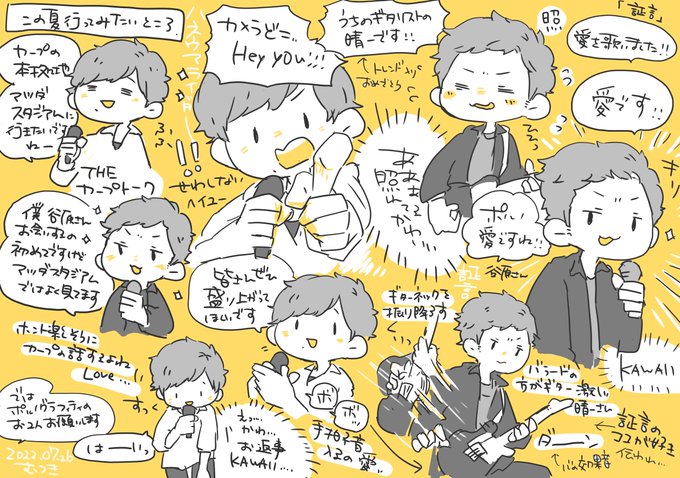 この夏行ってみたいところ
カープの
本拠地
マツダ
スタジアムに
行きたいです
ねー
ふふ
THE
カープトーク
ハネウマライダー!!
せわしない
ヘイユー
カメラどこ…
Hey you!!!
うちのギタリストの
晴一です!!
↑トレンド入り
おめでとう
照
「証言」
愛を歌いました!!
愛です!!
ああぁ
照れ
てる
かわ…
ポルノ
愛ですね!!
谷原さん
キリッ
僕 谷原さん
お会いするの
初めてですけど
マツダスタジアム
ではよく見てます
皆さんぜひ
盛り上がって
ほしいです
証言
ギターネックを
振り降ろす
KAWAII
バラードの
方がギター激しい
晴一さん
ホント楽しそうに
カープの話するよね
Love…
すっく
では
ポルノグラフィティの
お二人お願いします
はーいっ
えっ…
かわ…
お返事
KAWAII…
ボボッ
手拍子音
入るの愛…
ダーン
証言の
ココが好き
伝われ…
2022.07.26
むつき